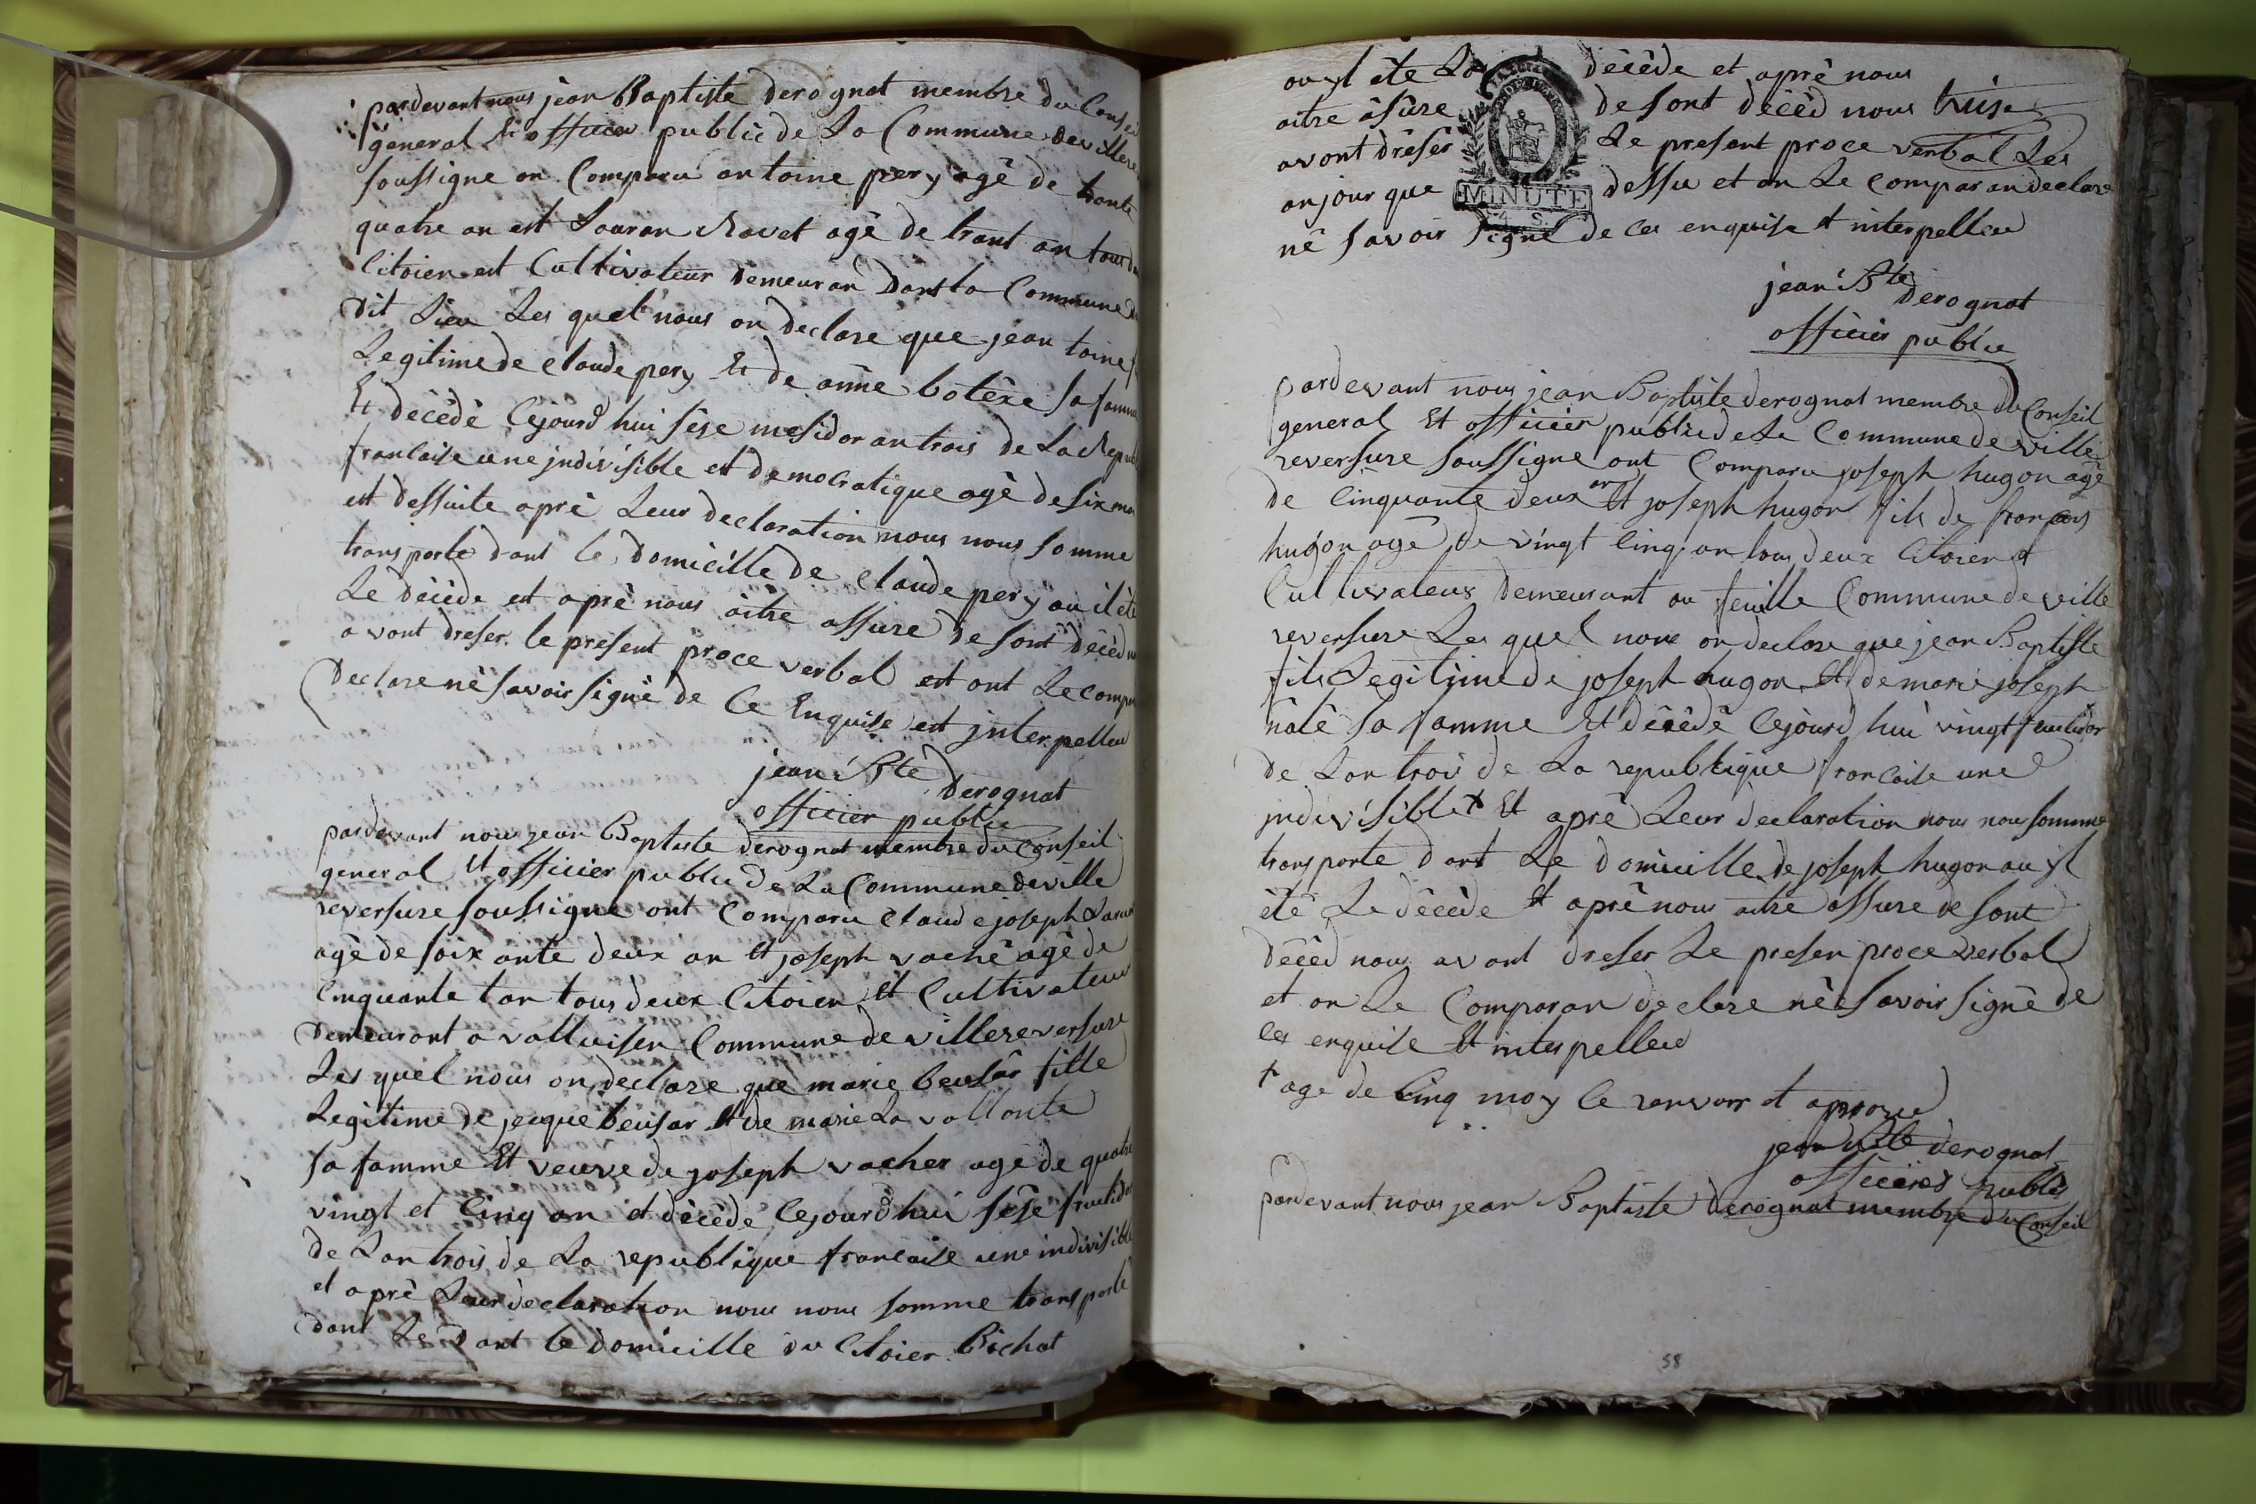 pardevant nous jean Baptiste derognat membre du Conseil
general Et officier public de La Commune de villere
soussigne on Comparu antoine pery agê de trante
quatre an est Lauran Ravet agê de trant an tous d
Citoien est Cultivateur demeuran dans la Commune d
dit Lieu Les quel nous on declare que jean toine f
Legitime de claude pery Et de anne botêre sa famme
Et dècèdè Cejourd'hui sèse mesidor an trois de La Repu
francaise une jndivisible et democratique agè de six moi
est dessuite aprè Leur declaration nous nous somme
transporte dant le domicille de claude pery ou il ètè
Le dècède est aprè nous aitre assure de sont dècèd n
avont dreser le present proce verbal est ont Le compar
declare nè savoir signè de Ce Enquise est jnterpelleu
jean Bte derognat
officier public
pardevant nous jean Baptiste derognat membre du Conseil
general Et officier public de La Commune de ville
reversure soussigne ont Comparu Claude joseph
agè de soixante deux an Et joseph vachè agè de
Cinquante tan tous deux Citoien Et Cultivateur
demeurant a valluisen Commune de villereversure
Les quel nous on declare que marie beusar fille
Legitime de jacque beusar Et de marie La vallonte
sa famme Et veuve de joseph vacher agè de quatre
vingt et Cinq an et dècède Cejourd'hui sèse frutidor
de Lan trois de La republique francaise une indivisible
et aprè Leur declaration nous nous somme transporte
dant Le dant le domicille du Citoier Bichat
ou jl ète La dècède et aprè nous
aitre asure de sont dècèd nous
avont drèser Le present proce verbal Les
anjour que dessu et on Le comparan declare
nè savoir signè de Ces enquise Et interpelleu
MINUTE
4 S
jean Bte derognat
officier public
pardevant nous jean Baptiste derognat membre du Conseil
general Et officier public de La Commune de ville
reversure soussigne ont Comparu joseph hugon agè
de Cinquante deux an Et joseph hugon fils de francois
hugon agè de vingt Cinq an tous deux Citoien et
Cultivateur demeurant au feuille Commune de ville
reversure Les quel nous on declare que jean Baptiste
fils Legitjme de joseph hugon Et de marie joseph
nalè sa famme Et dècèdè Cejourd'hui vingt frutidor
de Lan trois de La republique francaise une
jndivisible x Et aprè Leur declaration nous nous somme
transporte dant Le domicille de joseph hugon ou jl
ètè Le dècède Et aprè nous aitre assure de sont
dècèd nous avont dreser Le presen proce verbal
et on Le Comparan declare nè savoir signè de
ces enquise Et interpelleu
x age de Cinq moy le renvois et approuve
jean Bte derognat
officier public
pardevant nous jean Baptiste derognat membre du Conseil
58